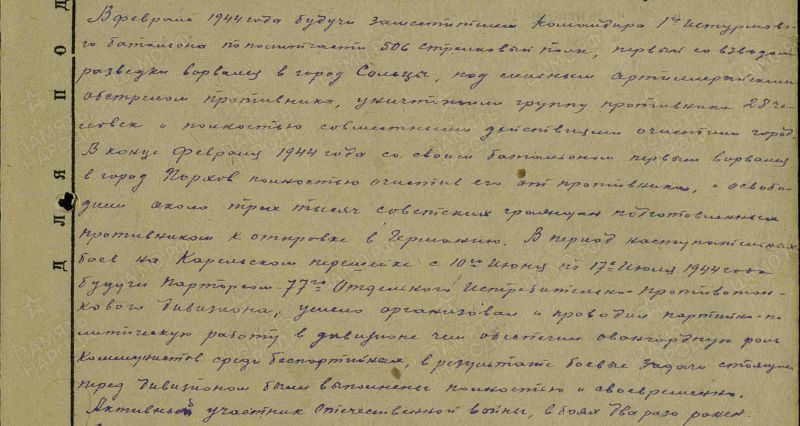 В феврале 1944 года будучи заместителем командира 1го Штурмово-
го батальона по политчасти 506 стрелковый полк, первым со взводом
разведки ворвался в город Сольцы, под сильным артиллерийским
обстрелом противника, уничтожили группу противника 28 че-
ловек и полностью совместными действиями очистили город.
В конце февраля 1944 года со своим батальоном первым ворвался
в город Порхов полностью очистив его от противника, и освобо-
дили около трех тысяч советских граждан подготовленных
противником к отправке в Германию. В период наступательных
боев на Карельском перешейке с 10го июня по 17е июля 1944 года
будучи парторгом 77го Отдельного Истребительно-противотан-
кового дивизиона, умело организовал и проводил партийно-по-
литическую работу в дивизионе чем обеспечил авангардную роль
коммунистов среди беспартийных, в результате боевые задачи стоящие
перед дивизионом были выполнены полностью и своевременно.
Активный участник отечественной войны, в боях два раза ранен.
ДЛЯ ПОД